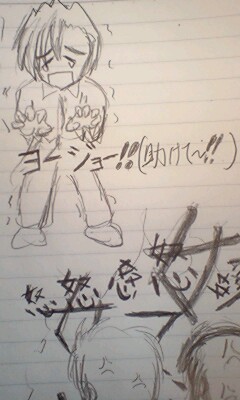 ヨージョー!!(助けて~!!)
怒 怒 怒 怒 怒